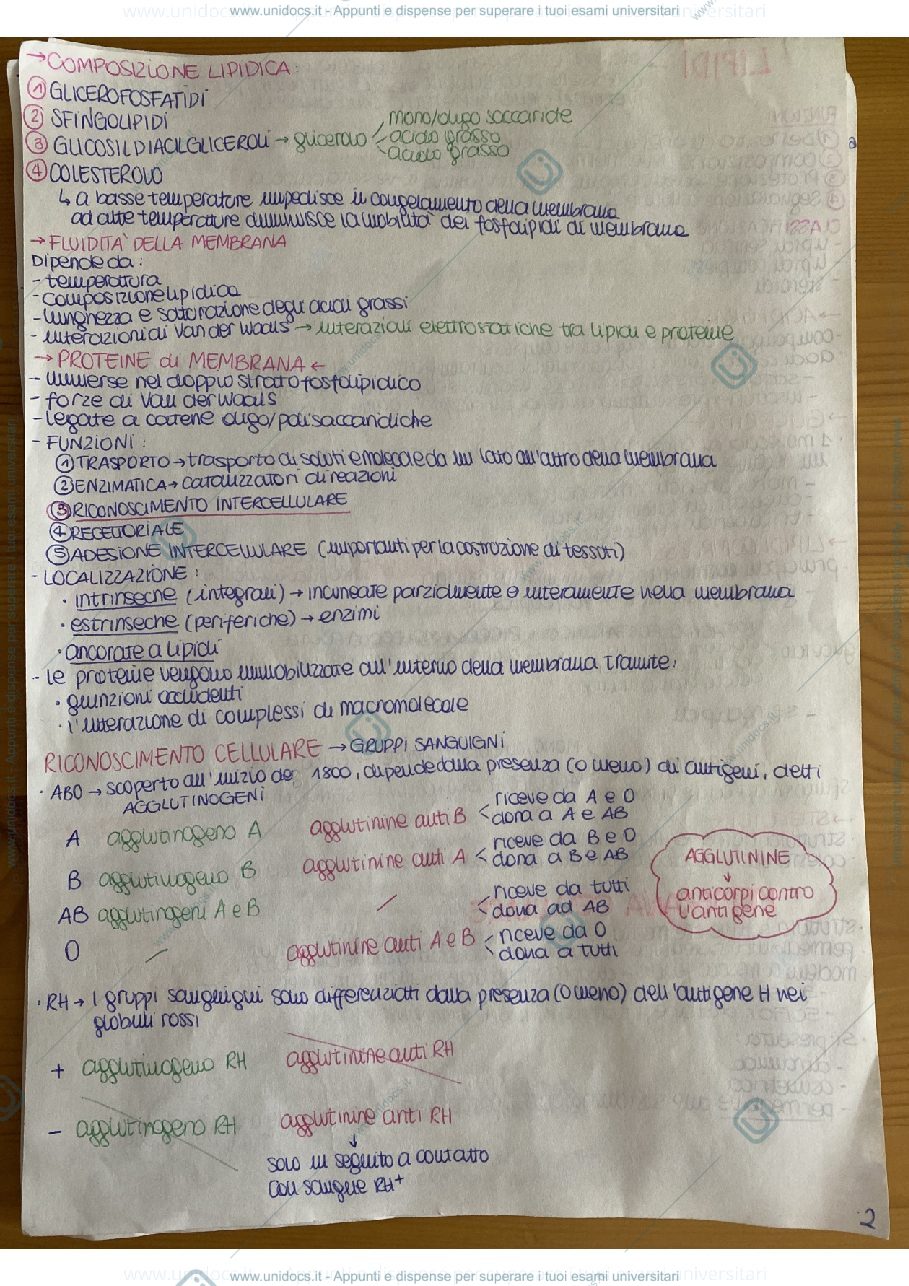 www.unidocs.it - Appunti e dispense per superare i tuoi esami universitari
→ COMPOSIZIONE LIPIDICA:
① GLICEROFOSFATIDI
② SFINGOLIPIDI
③ GLICOSILDIACILGLICEROLI → glicerolo mono/oligo saccaride
acido grasso
acido grasso
④ COLESTEROLO
↳ a basse temperature impedisce il congelamento della membrana
ad alte temperature diminuisce la mobilità dei fosfolipidi di membrana
→ FLUIDITÀ DELLA MEMBRANA
Dipende da:
- temperatura
- composizione lipidica
- lunghezza e saturazione degli acidi grassi
- interazioni di Van der Waals → interazioni elettrostatiche tra lipidi e proteine
→ PROTEINE di MEMBRANA ←
- immerse nel doppio strato fosfolipidico
- forze di Van der Waals
- legate a catene oligo/polisaccaridiche
- FUNZIONI:
① TRASPORTO → trasporto di soluti e molecole da un lato all'altro della membrana
② ENZIMATICA → catalizzatori di reazioni
③ RICONOSCIMENTO INTERCELLULARE
④ RECETTORIALE
⑤ ADESIONE INTERCELLULARE (importanti per la costruzione di tessuti)
- LOCALIZZAZIONE:
· intrinseche (integrali) → incuneate parzialmente o interamente nella membrana
· estrinseche (periferiche) → enzimi
· ancorate a lipidi
- le proteine vengono immobilizzate all'interno della membrana tramite:
· giunzioni occludenti
· l'interazione di complessi di macromolecole
RICONOSCIMENTO CELLULARE → GRUPPI SANGUIGNI
· AB0 → scoperto all'inizio del 1800, dipende dalla presenza (o meno) di antigeni, detti
AGGLUTINOGENI
A agglutinogeno A agglutinine anti B < riceve da A e 0
dona a A e AB
B agglutinogeno B agglutinine anti A < riceve da B e 0
dona a B e AB
AB agglutinogeni A e B / < riceve da tutti
dona ad AB
0 / agglutinine anti A e B < riceve da 0
dona a tutti
AGGLUTININE
↓
anticorpi contro
l'antigene
· RH → i gruppi sanguigni sono differenziati dalla presenza (o meno) dell'antigene H nei
globuli rossi
+ agglutinogeno RH agglutinine anti RH
- agglutinogeno RH agglutinine anti RH
↓
solo in seguito a contatto
con sangue RH+
2
www.unidocs.it - Appunti e dispense per superare i tuoi esami universitari